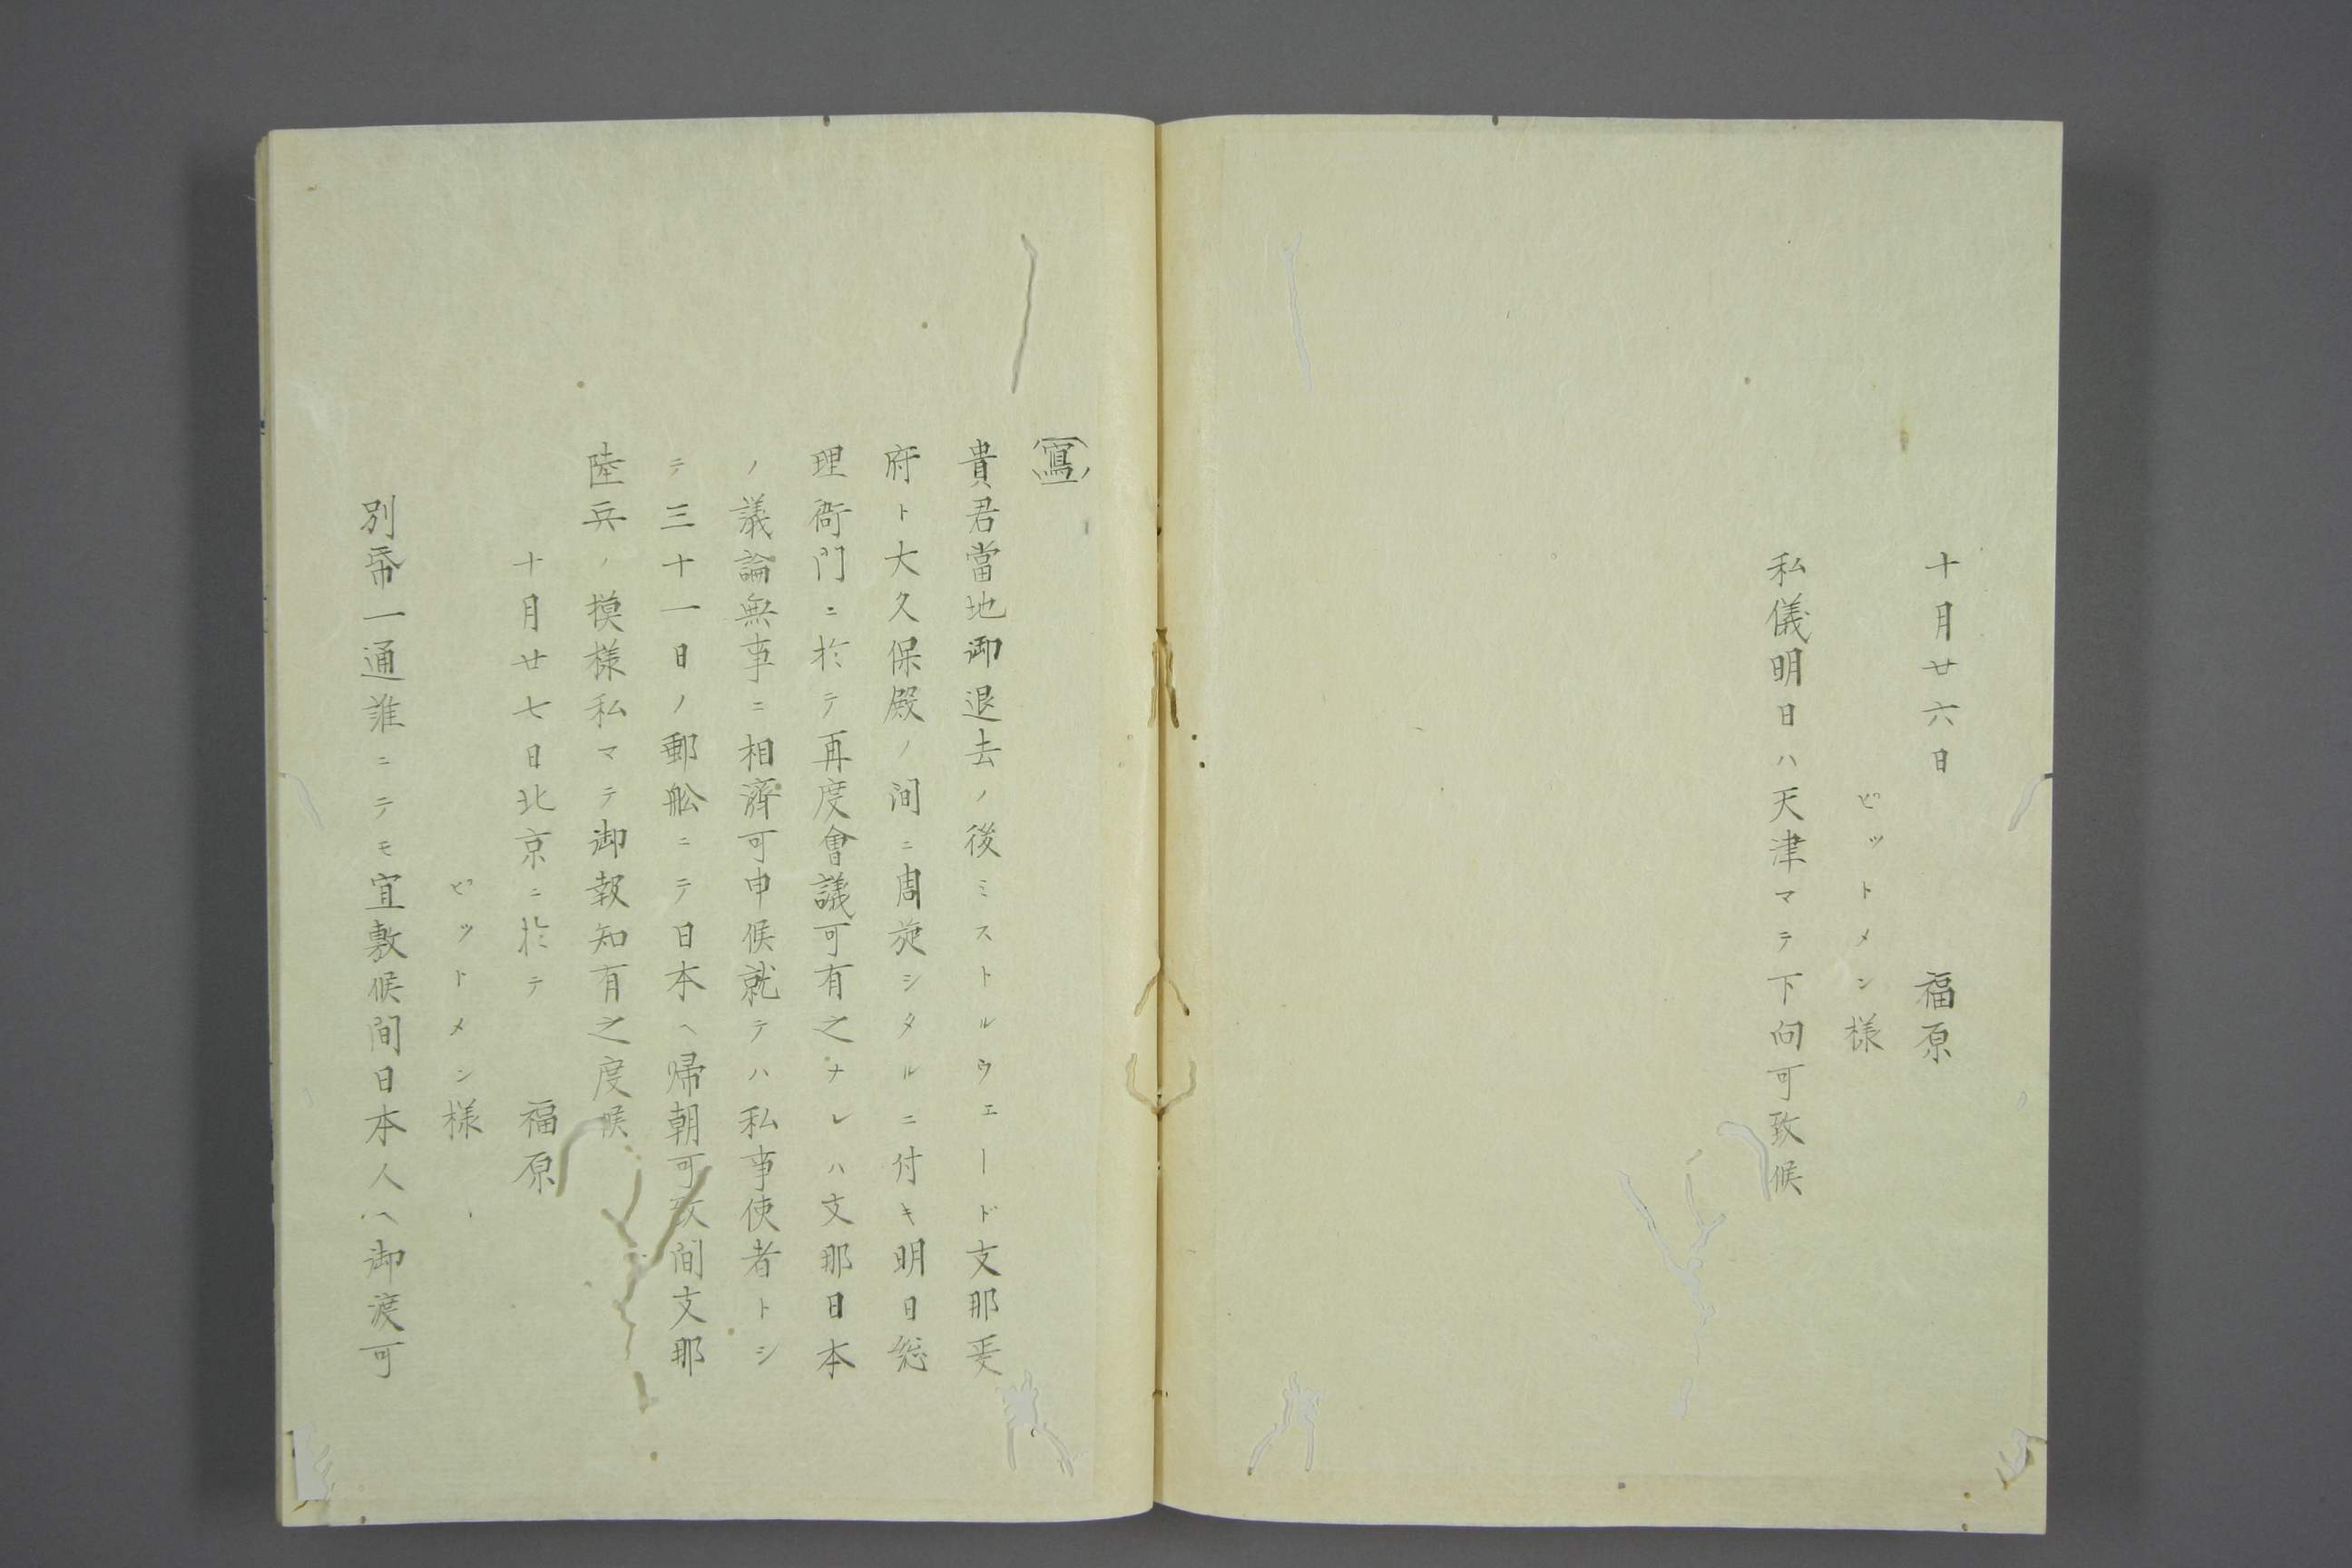 十月廿六日　福原
ピットメン様
私儀明日ハ天津マテ下向可致候
(寫)
貴君當地御退去ノ後ミストルウエード支那政
府ト大久保殿ノ间ニ周旋シタルニ付キ明日総
理衙門ニ於テ再度會議可有之ナレハ支那日本
ノ議論無事ニ相濟可申候就テハ私事使者トシ
テ三十一日ノ郵舩ニテ日本ヘ帰朝可致间支那
陸兵ノ模様私マテ御報知有之度候
十月廿七日北京ニ於テ　福原
ピットメン様
別帋一通誰ニテモ宜敷候间日本人ヘ御渡可